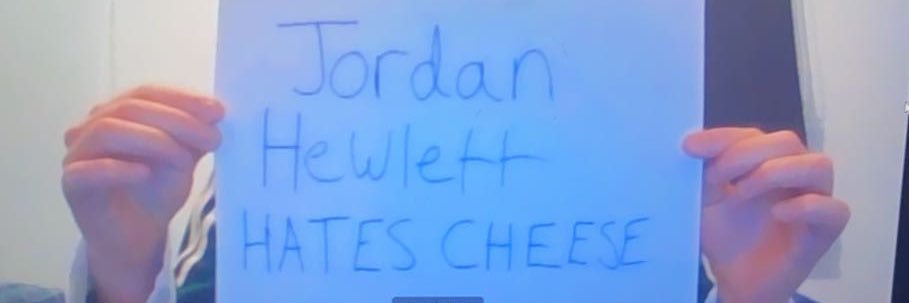 Jordan
Hewlett
HATES CHEESE